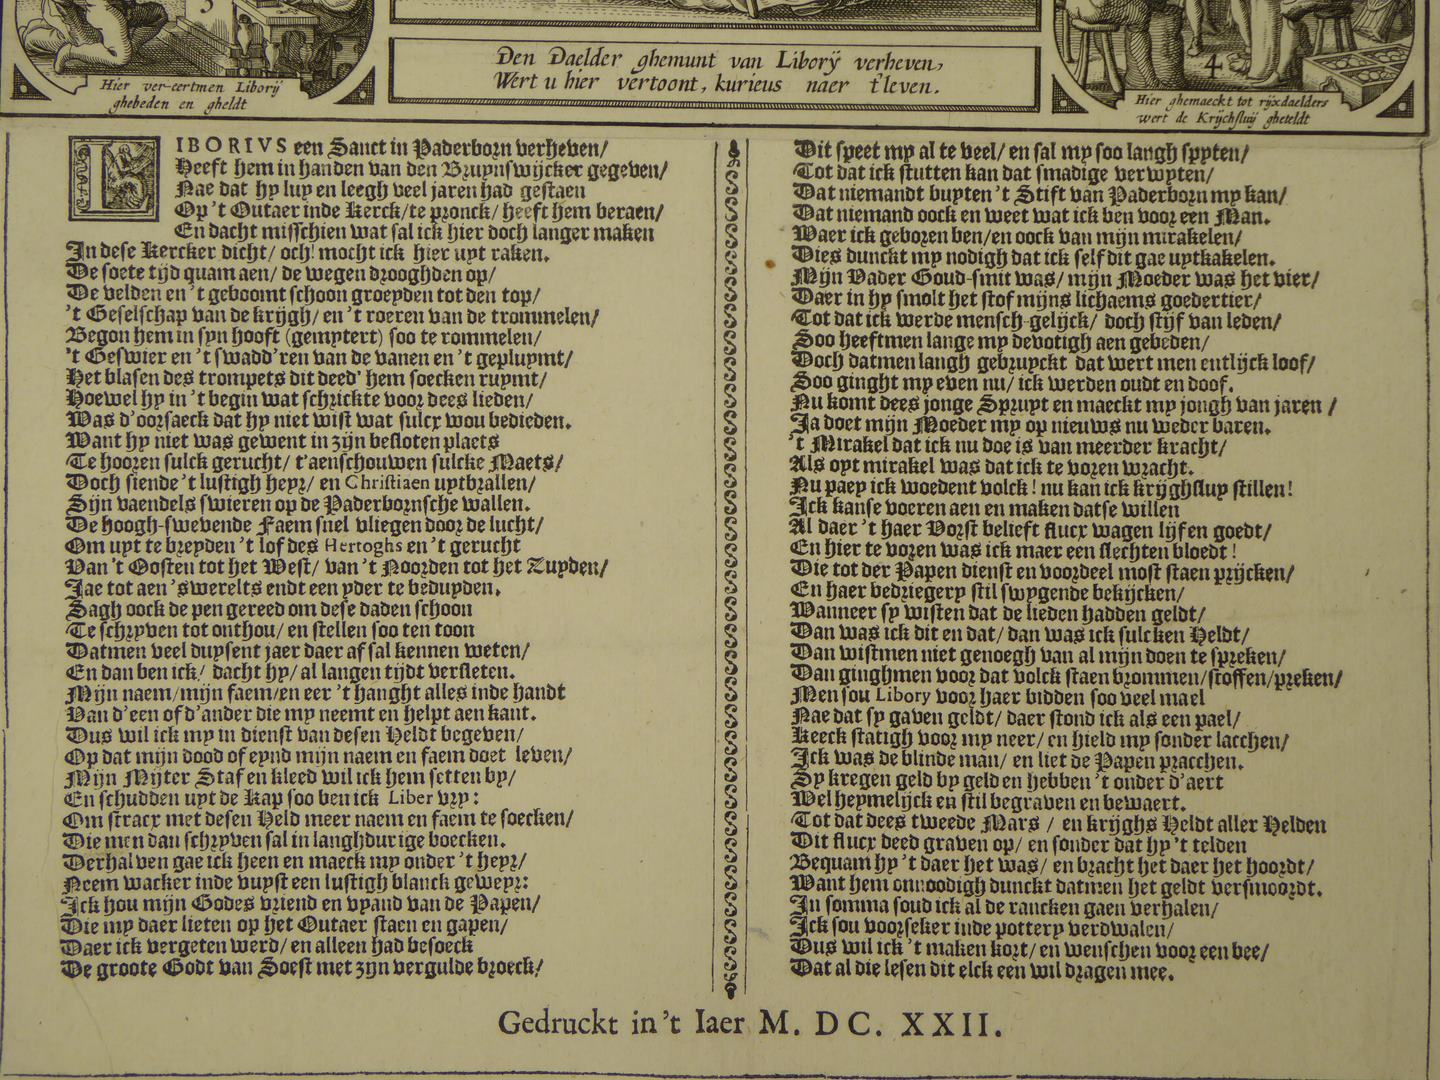 3
Hier ver-eertmen Liborÿ
ghebeden en gheldt
Den Daelder ghemunt van Liborÿ verheven,
Wert u hier vertoont, kurieus naer t'leven.
4
Hier ghemaeckt tot rijxdaelders
wert de Krijchsluij gheteldt
LIBORIVS een Sanct in Paderborn verheven/
Heeft hem in handen van den Bruynswijcker gegeven/
Nae dat hy luy en leegh veel jaren had gestaen
Op 't Outaer inde Kerck/te pronck/ heeft hem beraen/
En dacht misschien wat sal ick hier doch langer maken
In dese Kercker dicht/ och! mocht ick hier uyt raken.
De soete tijd quam aen/ de wegen drooghden op/
De velden en 't geboomt schoon groeyden tot den top/
't Geselschap van de krijgh/ en 't roeren van de trommelen/
Begon hem in syn hooft (gemytert) soo te rommelen/
't Geswier en 't swadd'ren van de vanen en 't gepluymt/
Het blasen des trompets dit deed' hem soecken ruymt/
Hoewel hy in 't begin wat schrickte voor dees lieden/
Was d'oorsaeck dat hy niet wist wat sulcx wou bedieden.
Want hy niet was gewent in zijn besloten plaets
Te hooren sulck gerucht/ t'aenschouwen sulcke Maets/
Doch siende 't lustigh heyr/ en Christiaen uytbrallen/
Sijn vaendels swieren op de Paderbornsche wallen.
De hoogh-swevende Faem snel vliegen door de lucht/
Om uyt te breyden 't lof des Hertoghs en 't gerucht
Van 't Oosten tot het West/ van 't Noorden tot het Zuyden/
Jae tot aen 'swerelts endt een yder te beduyden.
Sagh oock de pen gereed om dese daden schoon
Te schryven tot onthou/ en stellen soo ten toon
Datmen veel duysent jaer daer af sal kennen weten/
En dan ben ick/ dacht hy/ al langen tijdt versleten.
Mijn naem/mijn faem/en eer 't hanght alles inde handt
Van d'een of d'ander die my neemt en helpt aen kant.
Dus wil ick my in dienst van desen Heldt begeven/
Op dat mijn dood of eynd mijn naem en faem doet leven/
Mijn Mijter Staf en kleed wil ick hem setten by/
En schudden uyt de Kap soo ben ick Liber vry:
Om stracx met desen Held meer naem en faem te soecken/
Die men dan schryven sal in langhdurige boecken.
Derhalven gae ick heen en maeck my onder 't heyr/
Neem wacker inde vuyst een lustigh blanck geweyr:
Ick hou mijn Godes vriend en vyand van de Papen/
Die my daer lieten op het Outaer staen en gapen/
Daer ick vergeten werd/ en alleen had besoeck
De groote Godt van Soest met zijn vergulde broeck/
Dit speet my al te veel/ en sal my soo langh spyten/
Tot dat ick stutten kan dat smadige verwyten/
Dat niemandt buyten 't Stift van Paderborn my kan/
Dat niemand oock en weet wat ick ben voor een Man.
Waer ick geboren ben/en oock van mijn mirakelen/
Dies dunckt my nodigh dat ick self dit gae uytkakelen.
Mijn Vader Goud-smit was/ mijn Moeder was het vier/
Daer in hy smolt het stof mijns lichaems goedertier/
Tot dat ick werde mensch-gelijck/ doch stijf van leden/
Soo heeftmen lange my devotigh aen gebeden/
Doch datmen langh gebruyckt dat wert men entlijck loof/
Soo ginght my even nu/ ick werden oudt en doof.
Nu komt dees jonge Spruyt en maeckt my jongh van jaren /
Ja doet mijn Moeder my op nieuws nu weder baren.
't Mirakel dat ick nu doe is van meerder kracht/
Als oyt mirakel was dat ick te voren wracht.
Nu paey ick woedent volck! nu kan ick krijghsluy stillen!
Ick kanse voeren aen en maken datse willen
Al daer 't haer Vorst belieft flucx wagen lijf en goedt/
En hier te voren was ick maer een slechten bloedt!
Die tot der Papen dienst en voordeel most staen prijcken/
En haer bedriegery stil swygende bekijcken/
Wanneer sy wisten dat de lieden hadden geldt/
Dan was ick dit en dat/ dan was ick sulcken Heldt/
Dan wistmen niet genoegh van al mijn doen te spreken/
Dan ginghmen voor dat volck staen brommen/stoffen/preken/
Men sou Libory voor haer bidden soo veel mael
Nae dat sy gaven geldt/ daer stond ick als een pael/
Keeck statigh voor my neer/ en hield my sonder lacchen/
Ick was de blinde man/ en liet de Papen pracchen.
Sy kregen geld by geld en hebben 't onder d'aert
Wel heymelijck en stil begraven en bewaert.
Tot dat dees tweede Mars / en krijghs Heldt aller Helden
Dit flucx deed graven op/ en sonder dat hy 't telden
Bequam hy 't daer het was/ en bracht het daer het hoordt/
Want hem onnoodigh dunckt datmen het geldt versmoordt.
In somma soud ick al de rancken gaen verhalen/
Ick sou voorseker inde pottery verdwalen/
Dus wil ick 't maken kort/ en wenschen voor een bee/
Dat al die lesen dit elck een wil dragen mee.
Gedruckt in 't Iaer M. DC. XXII.